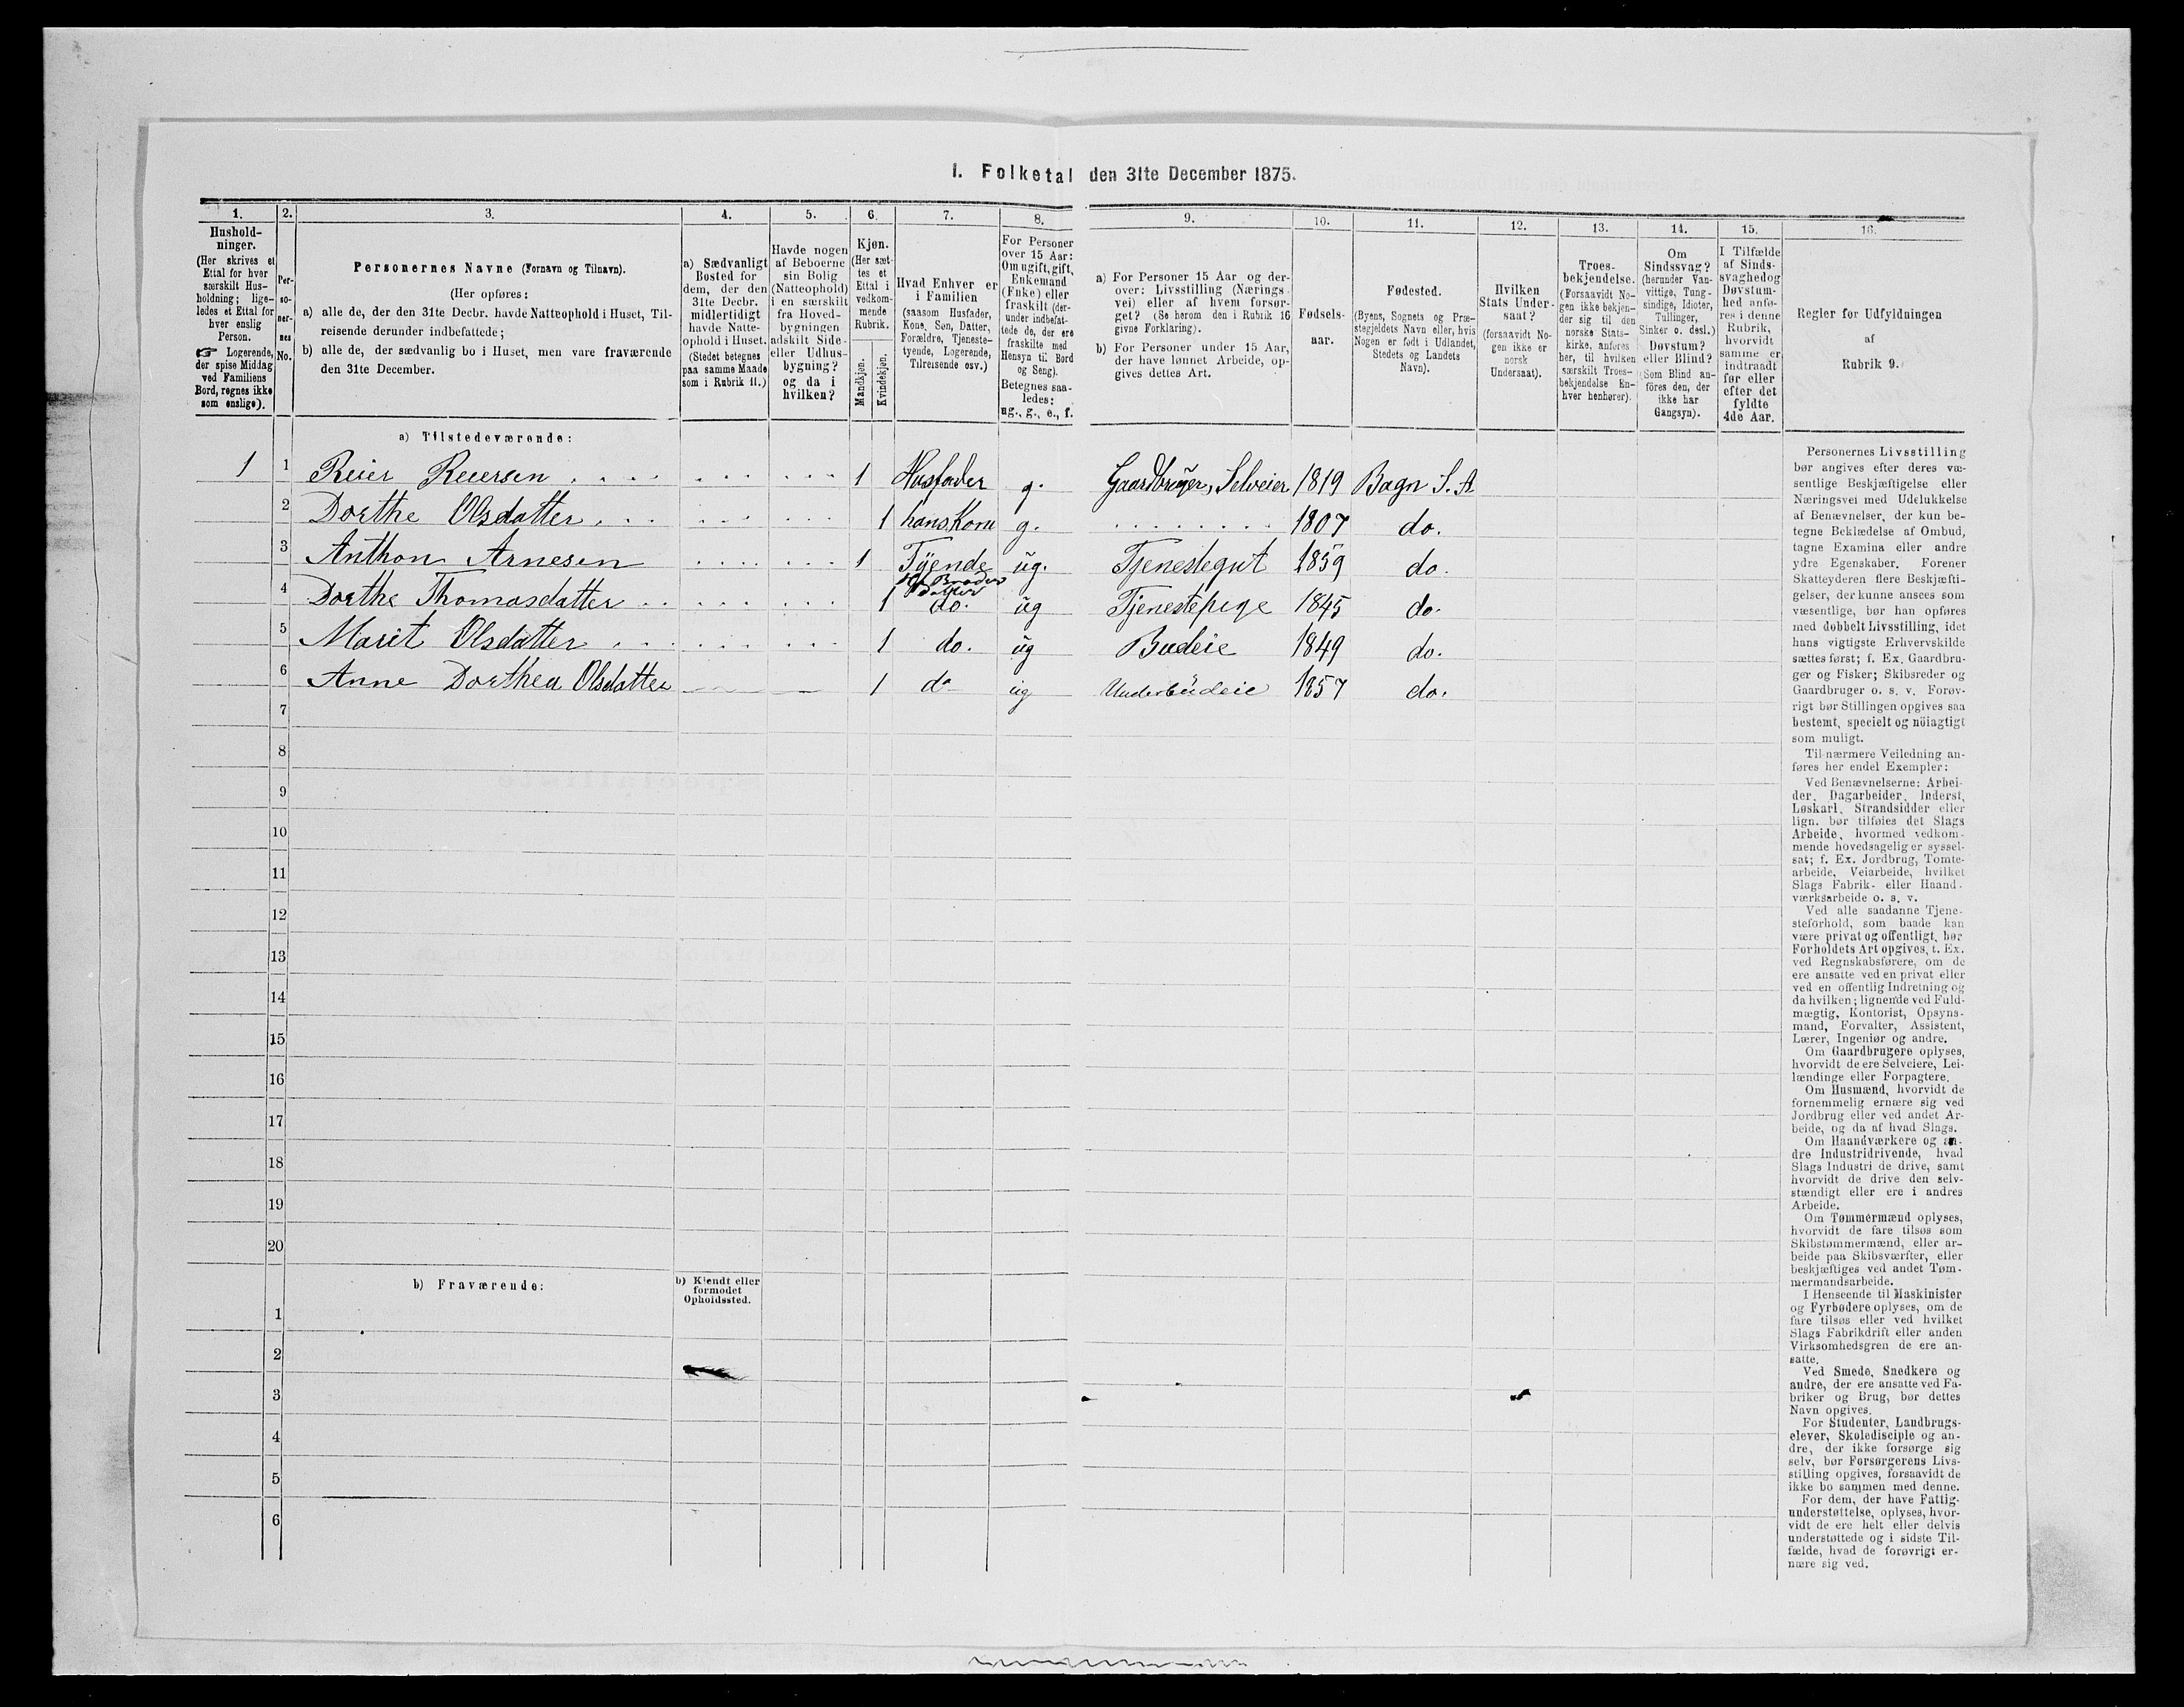 1. Folketal den 31te December 1875.
1.
Hushold-
ninger.
(Her skrives et
Ettal for hver
særskilt Hus-
holdning; lige-
ledes et Ettal for
hver enslig
Person.
☞ Logerende,
der spise Middag
ved Familiens
Bord, regnes ikke
som enslige).
2.
Per-
so-
ner-
nes
No.
3.
Personernes Navne (Fornavn og Tilnavn).
(Her opføres:
a) alle de, der den 31te Decbr. havde Natteophold i Huset, Til-
reisende derunder indbefattede;
b) alle de, der sædvanlig bo i Huset, men vare fraværende
den 31te December.
4.
a) Sædvanligt
Bosted for
dem, der den
31te Decbr.
midlertidigt
havde Natte-
ophold i Huset.
(Stedet betegnes
paa samme Maade
som i Rubrik 11.)
5.
Havde nogen
af Beboerne
sin Bolig
(Natteophold)
i en særskilt
fra Hoved-
bygningen
adskilt Side-
eller Udhus-
bygning?
og da i
hvilken?
6.
Kjøn.
(Her sæt-
tes et
Ettal i
vedkom-
mende
Rubrik.
Mandkjøn.
Kvindekjøn.
7.
Hvad Enhver er
i Familien
(saasom Husfader,
Kone, Søn, Datter,
Forældre, Tjeneste-
tyende, Logerende,
Tilreisende osv.)
8.
For Personer
over 15 Aar:
Om ugift, gift,
Enkemand
(Enke) eller
fraskilt (der-
under indbefat-
tede de, der ere
fraskilte med
Hensyn til Bord
og Seng).
Betegnes saa-
ledes:
ug., g., e., f.
9.
a) For Personer 15 Aar og der-
over: Livsstilling (Nærings-
vei) eller af hvem forsør-
get? (Se herom den i Rubrik 16
givne Forklaring).
b) For Personer under 15 Aar,
der have lønnet Arbeide, op-
gives dettes Art.
10.
Fødsels-
aar.
11.
Fødested.
(Byens, Sognets og Præ-
stegjeldets Navn eller, hvis
Nogen er født i Udlandet,
Stedets og Landets
Navn).
12.
Hvilken
Stats Under-
saat?
(forsaavidt No-
gen ikke er
norsk
Undersaat).
13.
Troes-
bekjendelse.
(Forsaavidt No-
gen ikke bekjen-
der sig til den
norske Stats-
kirke, anføres
her, til hvilken
særskilt Troes-
bekjendelse En-
hver henhører).
14.
Om
Sindssvag?
(herunder Van-
vittige, Tung-
sindige, Idioter,
Tullinger,
Sinker o. desl.)
Døvstum?
eller Blind?
(Som Blind an-
föres den, der
ikke har
Gangsyn).
15.
I Tilfælde
af Sinds-
svaghed og
Døvstum-
hed anfø-
res i denne
Rubrik,
hvorvidt
samme er
indtraadt
før eller
efter det
fyldte
4de Aar.
16.
Regler for Udfyldningen
af
Rubrik 9.
a) Tilstedeværende:
1 1 Reier Reiersen 1 Husfader g. Gaardbruger, Selveier 1819 Bagn S. A
2 Dorthe Olsdatter 1 hans Kone g. 1807 do.
3 Anthon Arnesen 1 Tjende ug. Tjenestegut 1859 do.
Broder
4 Dorthe Thomasdatter 1 do. ug Tjenestepige 1845 do.
5 Marit Olsdatter 1 do. ug Budeie 1849 do.
6 Anne Dorthea Olsdatter 1 do ug Underbudeie 1857 do.
7
8
9
10
11
12
13
14
15
16
17
18
19
20
b) Fraværende:
b) Kjendt eller
formodet
Opholdssted.
1
2
3
4
5
6
Personernes Livsstilling
bør angives efter deres væ-
sentlige Beskjæftigelse eller
Næringsvei med Udelukkelse
af Benævnelser, der kun be-
tegne Beklædelse af Ombud,
tagne Examina eller andre
ydre Egenskaber. Forener
Skatteyderen flere Beskjæfti-
gelser, der kunne ansees som
væsentlige, bør han opføres
med dobbelt Livsstilling, idet
hans vigtigste Erhvervskilde
sættes først; f. Ex. Gaardbru-
ger og Fisker; Skibsreder og
Gaardbruger o. s. v. Forøv-
rigt bør Stillingen opgives saa
bestemt, specielt og nöiagtigt
som muligt.
Til nærmere Veiledning an-
føres her endel Exempler:
Ved Benævnelserne: Arbei-
der, Dagarbeider, Inderst,
Løskarl, Strandsidder eller
lign. bør tilføies det Slags
Arbeide, hvormed vedkom-
mende hovedsagelig er syssel-
sat; f. Ex. Jordbrug, Tomte-
arbeide, Veiarbeide, hvilket
Slags Fabrik- eller Haand-
værksarbeide o. s. v.
Ved alle saadanne Tjene-
steforhold, som baade kan
være privat og offentligt, bør
Forholdets Art opgives, t. Ex.
ved Regnskabsførere, om de
ere ansatte ved en privat eller
ved en offentlig Indretning og
da hvilken; lignende ved Fuld-
mægtig, Kontorist, Opsyns-
mand, Forvalter, Assistent,
Lærer, Ingeniør og andre.
Om Gaardbrugere oplyses,
hvorvidt de ere Selveiere, Lei-
lændinge eller Forpagtere.
Om Husmænd, hvorvidt de
fornemmelig ernære sig ved
Jordbrug eller ved andet Ar-
beide, og da af hvad Slags.
Om Haandværkere og an-
dre Industridrivende, hvad
Slags Industri de drive, samt
hvorvidt de drive den selv-
stændigt eller ere i andres
Arbeide.
Om Tømmermænd oplyses,
hvorvidt de fare tilsøs som
Skibstømmermænd, eller ar-
beide paa Skibsværfter, eller
beskjæftiges ved andet Tøm-
mermandsarbeide.
I Henseende til Maskinister
og Fyrbødere oplyses, om de
fare tilsøs eller ved hvilket
Slags Fabrikdrift eller anden
Virksomhedsgren de ere an-
satte.
Ved Smede, Snedkere og
andre, der ere ansatte ved Fa-
briker og Brug, bør dettes
Navn opgives.
For Studenter, Landbrugs-
elever, Skoledisciple og an-
dre, der ikke forsørge sig
selv, bør Forsørgerens Livs-
stilling opgives, forsaavidt de
ikke bo sammen med denne.
For dem, der have Fattig-
understøttelse, oplyses, hvor-
vidt de ere helt eller delvis
understøttede og i sidste Til-
fælde, hvad de forøvrigt er-
nære sig ved.